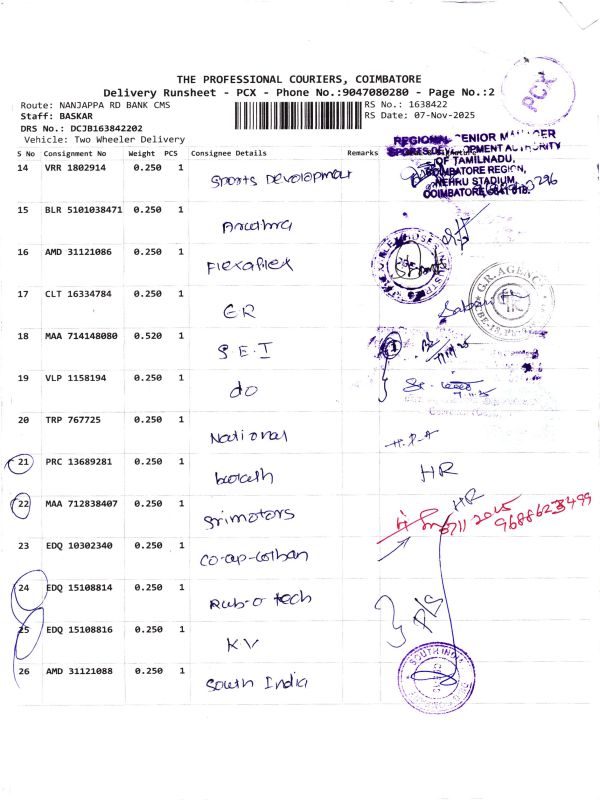 PCX
THE PROFESSIONAL COURIERS, COIMBATORE
Delivery Runsheet - PCX - Phone No.:9047080280 - Page No.:2
Route: NANJAPPA RD BANK CMS RS No.: 1638422
Staff: BASKAR RS Date: 07-Nov-2025
DRS No.: DCJB163842202
Vehicle: Two Wheeler Delivery
S No Consignment No Weight PCS Consignee Details Remarks
REGIONAL SENIOR MANAGER
SPORTS DEVELOPMENT AUTHORITY
OF TAMILNADU,
COIMBATORE REGION,
NEHRU STADIUM,
COIMBATORE-641 018.
14 VRR 1802914 0.250 1 Sports Devolopment
15 BLR 5101038471 0.250 1
16 AMD 31121086 0.250 1 Flexaflex
17 CLT 16334784 0.250 1 GR
G.R. AGENC
18 MAA 714148080 0.520 1 S.E.I
19 VLP 1158194 0.250 1 do
20 TRP 767725 0.250 1 National H.P.A
21 PRC 13689281 0.250 1 HR
22 MAA 712838407 0.250 1 Srimotors HR
9688623499
23 EDQ 10302340 0.250 1
24 EDQ 15108814 0.250 1 Rub-o tech
25 EDQ 15108816 0.250 1 KV
26 AMD 31121088 0.250 1 South India
SOUTH INDIA